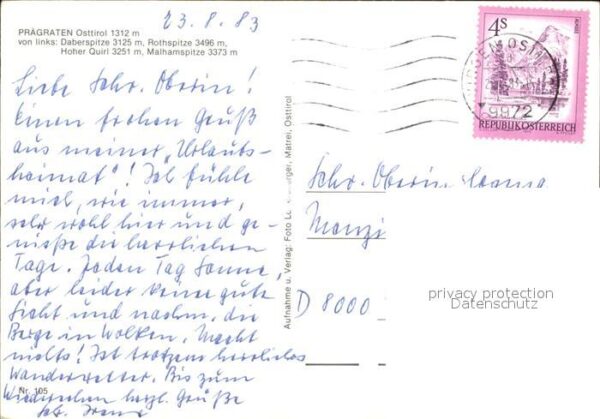 23.8.83
PRÄGRATEN Osttirol 1312 m
von links: Daberspitze 3125 m, Rothspitze 3496 m,
Hoher Quirl 3251 m, Malhamspitze 3373 m
Liebe Schr. Oberin!
Einen frohen Gruß
aus meiner "Urlaubs-
heimat"! Ich fühle
mich, wie immer,
sehr wohl hier und ge-
nieße die herrlichen
Tage. Jeden Tag Sonne,
aber leider keine gute
Sicht und nachm. die
Berge in Wolken. Macht
nichts! Ist trotzdem herrliches
Wanderwetter. Bis zum
Wiedersehen herzl. Grüße
Nr. 105
Schr. Irene
Aufnahme u. Verlag: Foto berger, Matrei, Osttirol
4S
ALMSEE
OSTTIROL
9972
REPUBLIK ÖSTERREICH
Schr. Oberin
D 8000
privacy protection
Datenschutz